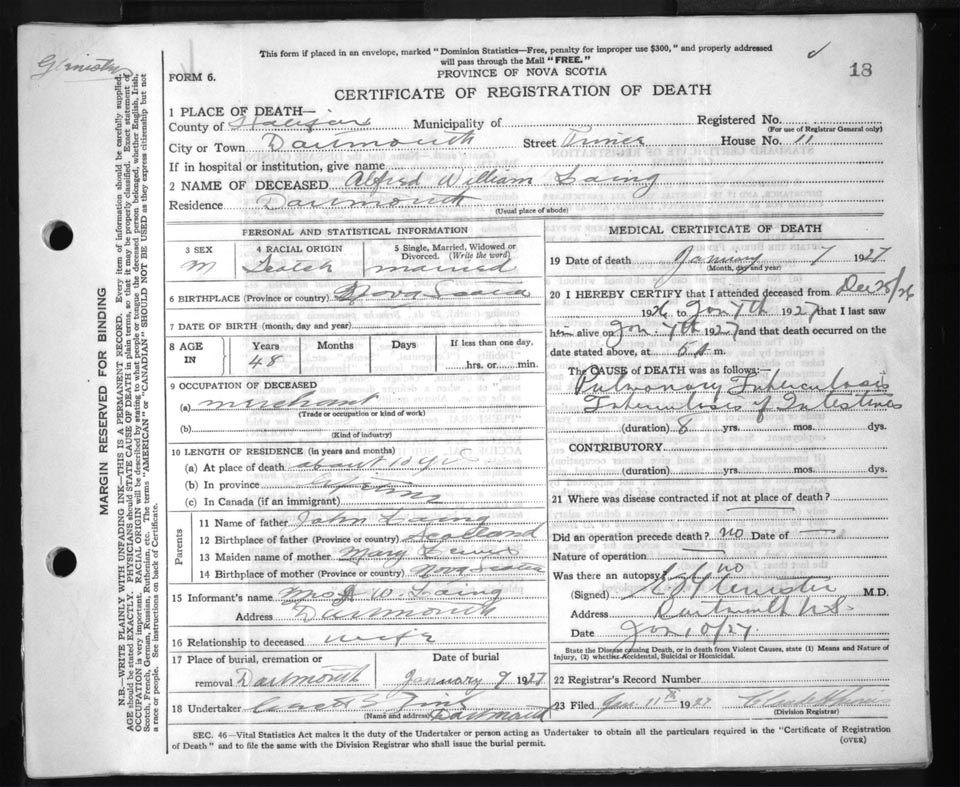 This form if placed in an envelope, marked "Dominion Statistics—Free, penalty for improper use $300," and properly addressed
will pass through the Mail "FREE."
FORM 6.
PROVINCE OF NOVA SCOTIA
18
CERTIFICATE OF REGISTRATION OF DEATH
MARGIN RESERVED FOR BINDING
N.B.—WRITE PLAINLY WITH UNFADING INK—THIS IS A PERMANENT RECORD. Every item of information should be carefully supplied.
AGE should be stated EXACTLY. PHYSICIANS should STATE CAUSE OF DEATH in plain terms, so that it may be properly classified. Exact statement of
OCCUPATION is very important. RACIAL ORIGIN will be described by stating to what people or tongue the deceased person belonged, whether English, Irish,
Scotch, French, German, Russian, Ruthenian, etc. The terms "AMERICAN" or "CANADIAN" SHOULD NOT BE USED as they express citizenship but not
a race or people. See instructions on back of Certificate.
1 PLACE OF DEATH—
County of Halifax Municipality of Registered No.
(For use of Registrar General only)
City or Town Dartmouth Street House No. 11
If in hospital or institution, give name
2 NAME OF DECEASED Alfred William Laing
Residence Dartmouth
(Usual place of abode)
PERSONAL AND STATISTICAL INFORMATION
3 SEX 4 RACIAL ORIGIN 5 Single, Married, Widowed or Divorced. (Write the word)
M Scotch married
6 BIRTHPLACE (Province or country) Nova Scotia
7 DATE OF BIRTH (month, day and year)
8 AGE IN Years Months Days If less than one day,
48 hrs. or min.
9 OCCUPATION OF DECEASED
(a) merchant
(Trade or occupation or kind of work)
(b)
(Kind of industry)
10 LENGTH OF RESIDENCE (in years and months)
(a) At place of death about 10 yrs
(b) In province
(c) In Canada (if an immigrant)
Parents
11 Name of father John Laing
12 Birthplace of father (Province or country) Scotland
13 Maiden name of mother Mary
14 Birthplace of mother (Province or country) Nova Scotia
15 Informant's name Mrs A W. Laing
Address Dartmouth
16 Relationship to deceased wife
17 Place of burial, cremation or removal Dartmouth
Date of burial January 9 1927
18 Undertaker
(Name and address) Dartmouth
MEDICAL CERTIFICATE OF DEATH
19 Date of death January 7 1927
(Month, day and year)
20 I HEREBY CERTIFY that I attended deceased from Dec 25/26
1926 to Jan 7th 1927 that I last saw
him alive on Jan 7th 1927 and that death occurred on
date stated above, at 5 a m.
The CAUSE of DEATH was as follows:—
Pulmonary Tuberculosis
Tuberculosis of Intestines
(duration) 8 yrs. mos. dys.
CONTRIBUTORY
(duration) yrs. mos. dys.
21 Where was disease contracted if not at place of death?
Did an operation precede death? no Date of —
Nature of operation —
Was there an autopsy? no
(Signed) M.D.
Address Dartmouth N.S.
Date Jan 10/27
State the Disease causing Death, or in death from Violent Causes, state (1) Means and Nature of
Injury, (2) whether Accidental, Suicidal or Homicidal.
22 Registrar's Record Number
23 Filed Jan 11th 1927
(Division Registrar)
SEC. 46—Vital Statistics Act makes it the duty of the Undertaker or person acting as Undertaker to obtain all the particulars required in the "Certificate of Registration
of Death" and to file the same with the Division Registrar who shall issue the burial permit.
(OVER)